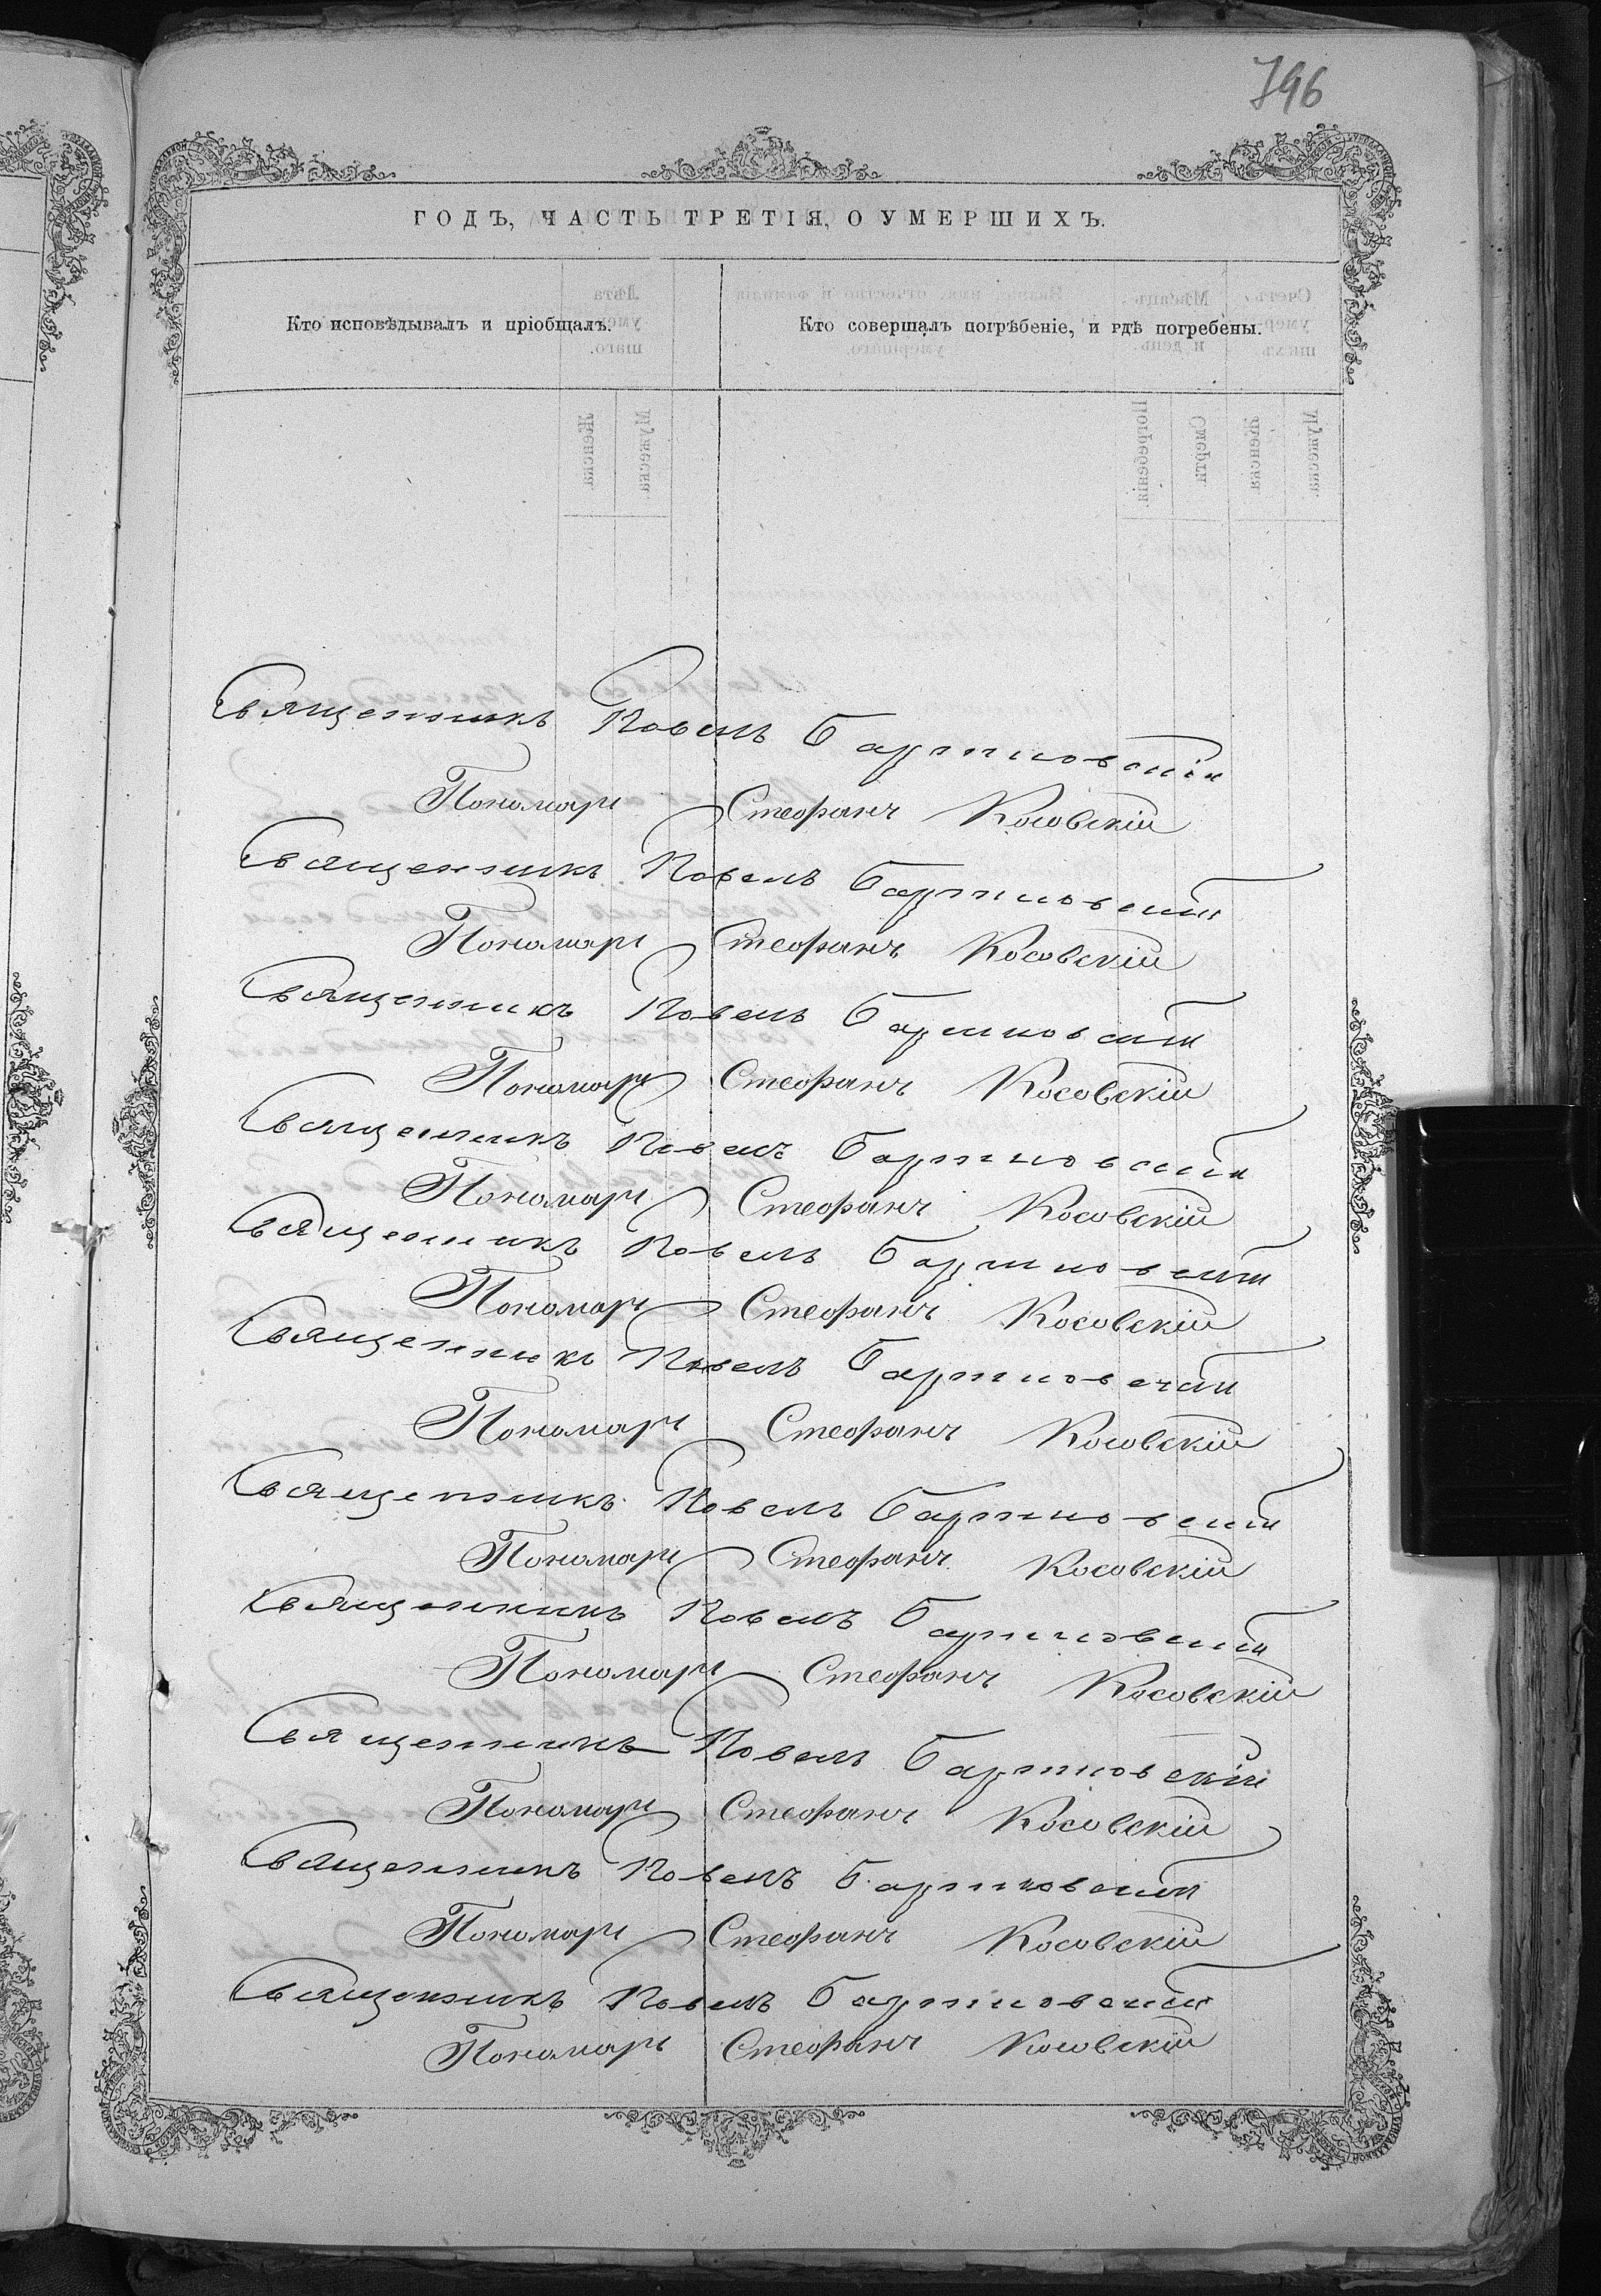 796
ГОДЪ, ЧАСТЬ ТРЕТІЯ, О УМЕРШИХЪ.
Кто исповѣдывалъ и пріобщалъ.
Кто совершалъ погрѣбеніе, и гдѣ погребены.
Священникъ Павелъ Бартновскій
Пономарь Стефанъ Косовскій
Священникъ Павелъ Бартновскій
Пономарь Стефанъ Косовскій
Священникъ Павелъ Бартновскій
Пономарь Стефанъ Косовскій
Священникъ Павелъ Бартновскій
Пономарь Стефанъ Косовскій
Священникъ Павелъ Бартновскій
Пономарь Стефанъ Косовскій
Священникъ Павелъ Бартновскій
Пономарь Стефанъ Косовскій
Священникъ Павелъ Бартновскій
Пономарь Стефанъ Косовскій
Священникъ Павелъ Бартновскій
Пономарь Стефанъ Косовскій
Священникъ Павелъ Бартновскій
Пономарь Стефанъ Косовскій
Священникъ Павелъ Бартновскій
Пономарь Стефанъ Косовскій
Священникъ Павелъ Бартновскій
Пономарь Стефанъ Косовскій